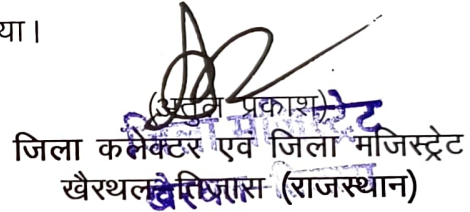 या।
(अतुल प्रकाश)
जिला कलेक्टर एवं जिला मजिस्ट्रेट
खैरथल-तिजारा (राजस्थान)